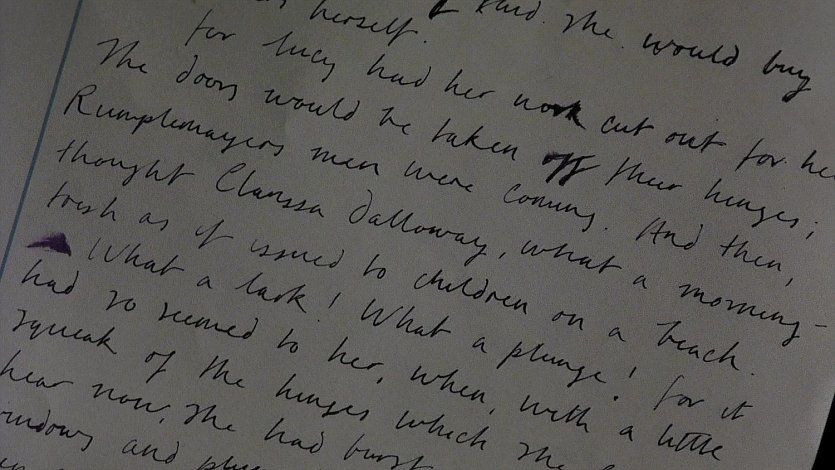 herself. said she would buy
for Lucy had her work cut out for he
The doors would be taken off their hinges;
Rumplemayers men were coming. And then,
thought Clarissa Dalloway, what a morning-
fresh as if issued to children on a beach.
What a lark! What a plunge! For it
had so seemed to her, when, with a little
squeak of the hinges which she
hear now, she had burst
indows and plu